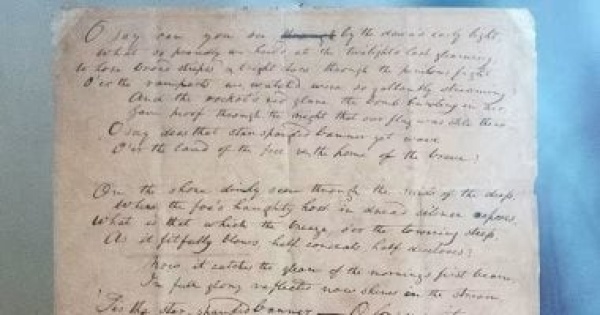 O say can you see ~~through~~ by the dawn's early light
What so proudly we hail'd at the twilight's last gleaming
whose broad stripes & bright stars through the perilous fight
O'er the ramparts we watch'd were so gallantly streaming?
And the rocket's red glare the bomb bursting in air
Gave proof through the night that our flag was still there
O say does that star spangled banner yet wave
O'er the land of the free & the home of the brave?
On the shore dimly seen through the mists of the deep,
Where the foe's haughty host in dread silence reposes
What is that which the breeze, o'er the towering steep,
As it fitfully blows, half conceals, half discloses?
Now it catches the gleam of the morning's first beam,
In full glory reflected now shines in the stream,
'Tis the star-spangled banner — O